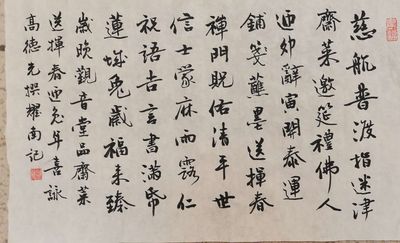 慈航普渡指迷津
齋菜邀筵禮佛人
迎卯辭寅開泰運
鋪箋蘸墨送揮春
禪門貺佑清平世
信士蒙庥雨露仁
祝語吉言書滿帋
蓮城兔歲福來臻
歲晚觀音堂品齋菜
送揮春迎兔年喜詠
高德光撰耀南記